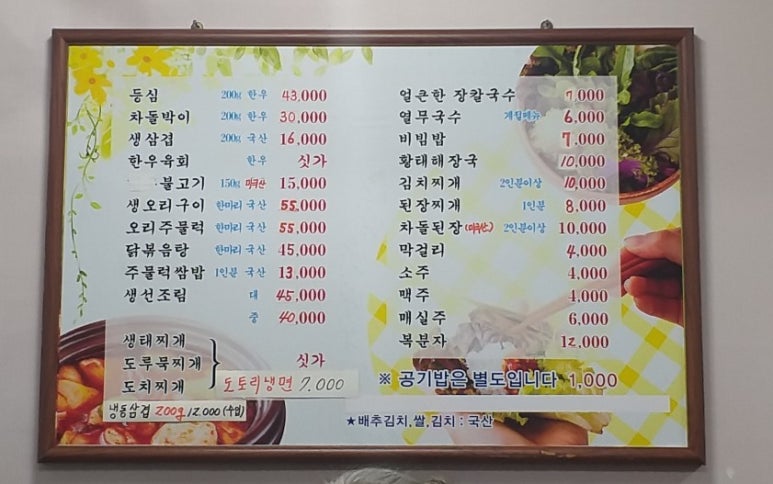 등심 200g 한우 43,000
차돌박이 200g 한우 30,000
생삼겹 200g 국산 16,000
한우육회 한우 싯가
불고기 150g 미국산 15,000
생오리구이 한마리 국산 55,000
오리주물럭 한마리 국산 55,000
닭볶음탕 한마리 국산 45,000
주물럭쌈밥 1인분 국산 13,000
생선조림 대 45,000
중 40,000
생태찌개
도루묵찌개 싯가
도치찌개
도토리냉면 7,000
냉동삼겹 200g 12,000 (수입)
얼큰한 장칼국수 7,000
열무국수 계절메뉴 6,000
비빔밥 7,000
황태해장국 10,000
김치찌개 2인분이상 10,000
된장찌개 1인분 8,000
차돌된장(미국산) 2인분이상 10,000
막걸리 4,000
소주 4,000
맥주 4,000
매실주 6,000
복분자 12,000
※ 공기밥은 별도입니다 1,000
★배추김치,쌀,김치 : 국산